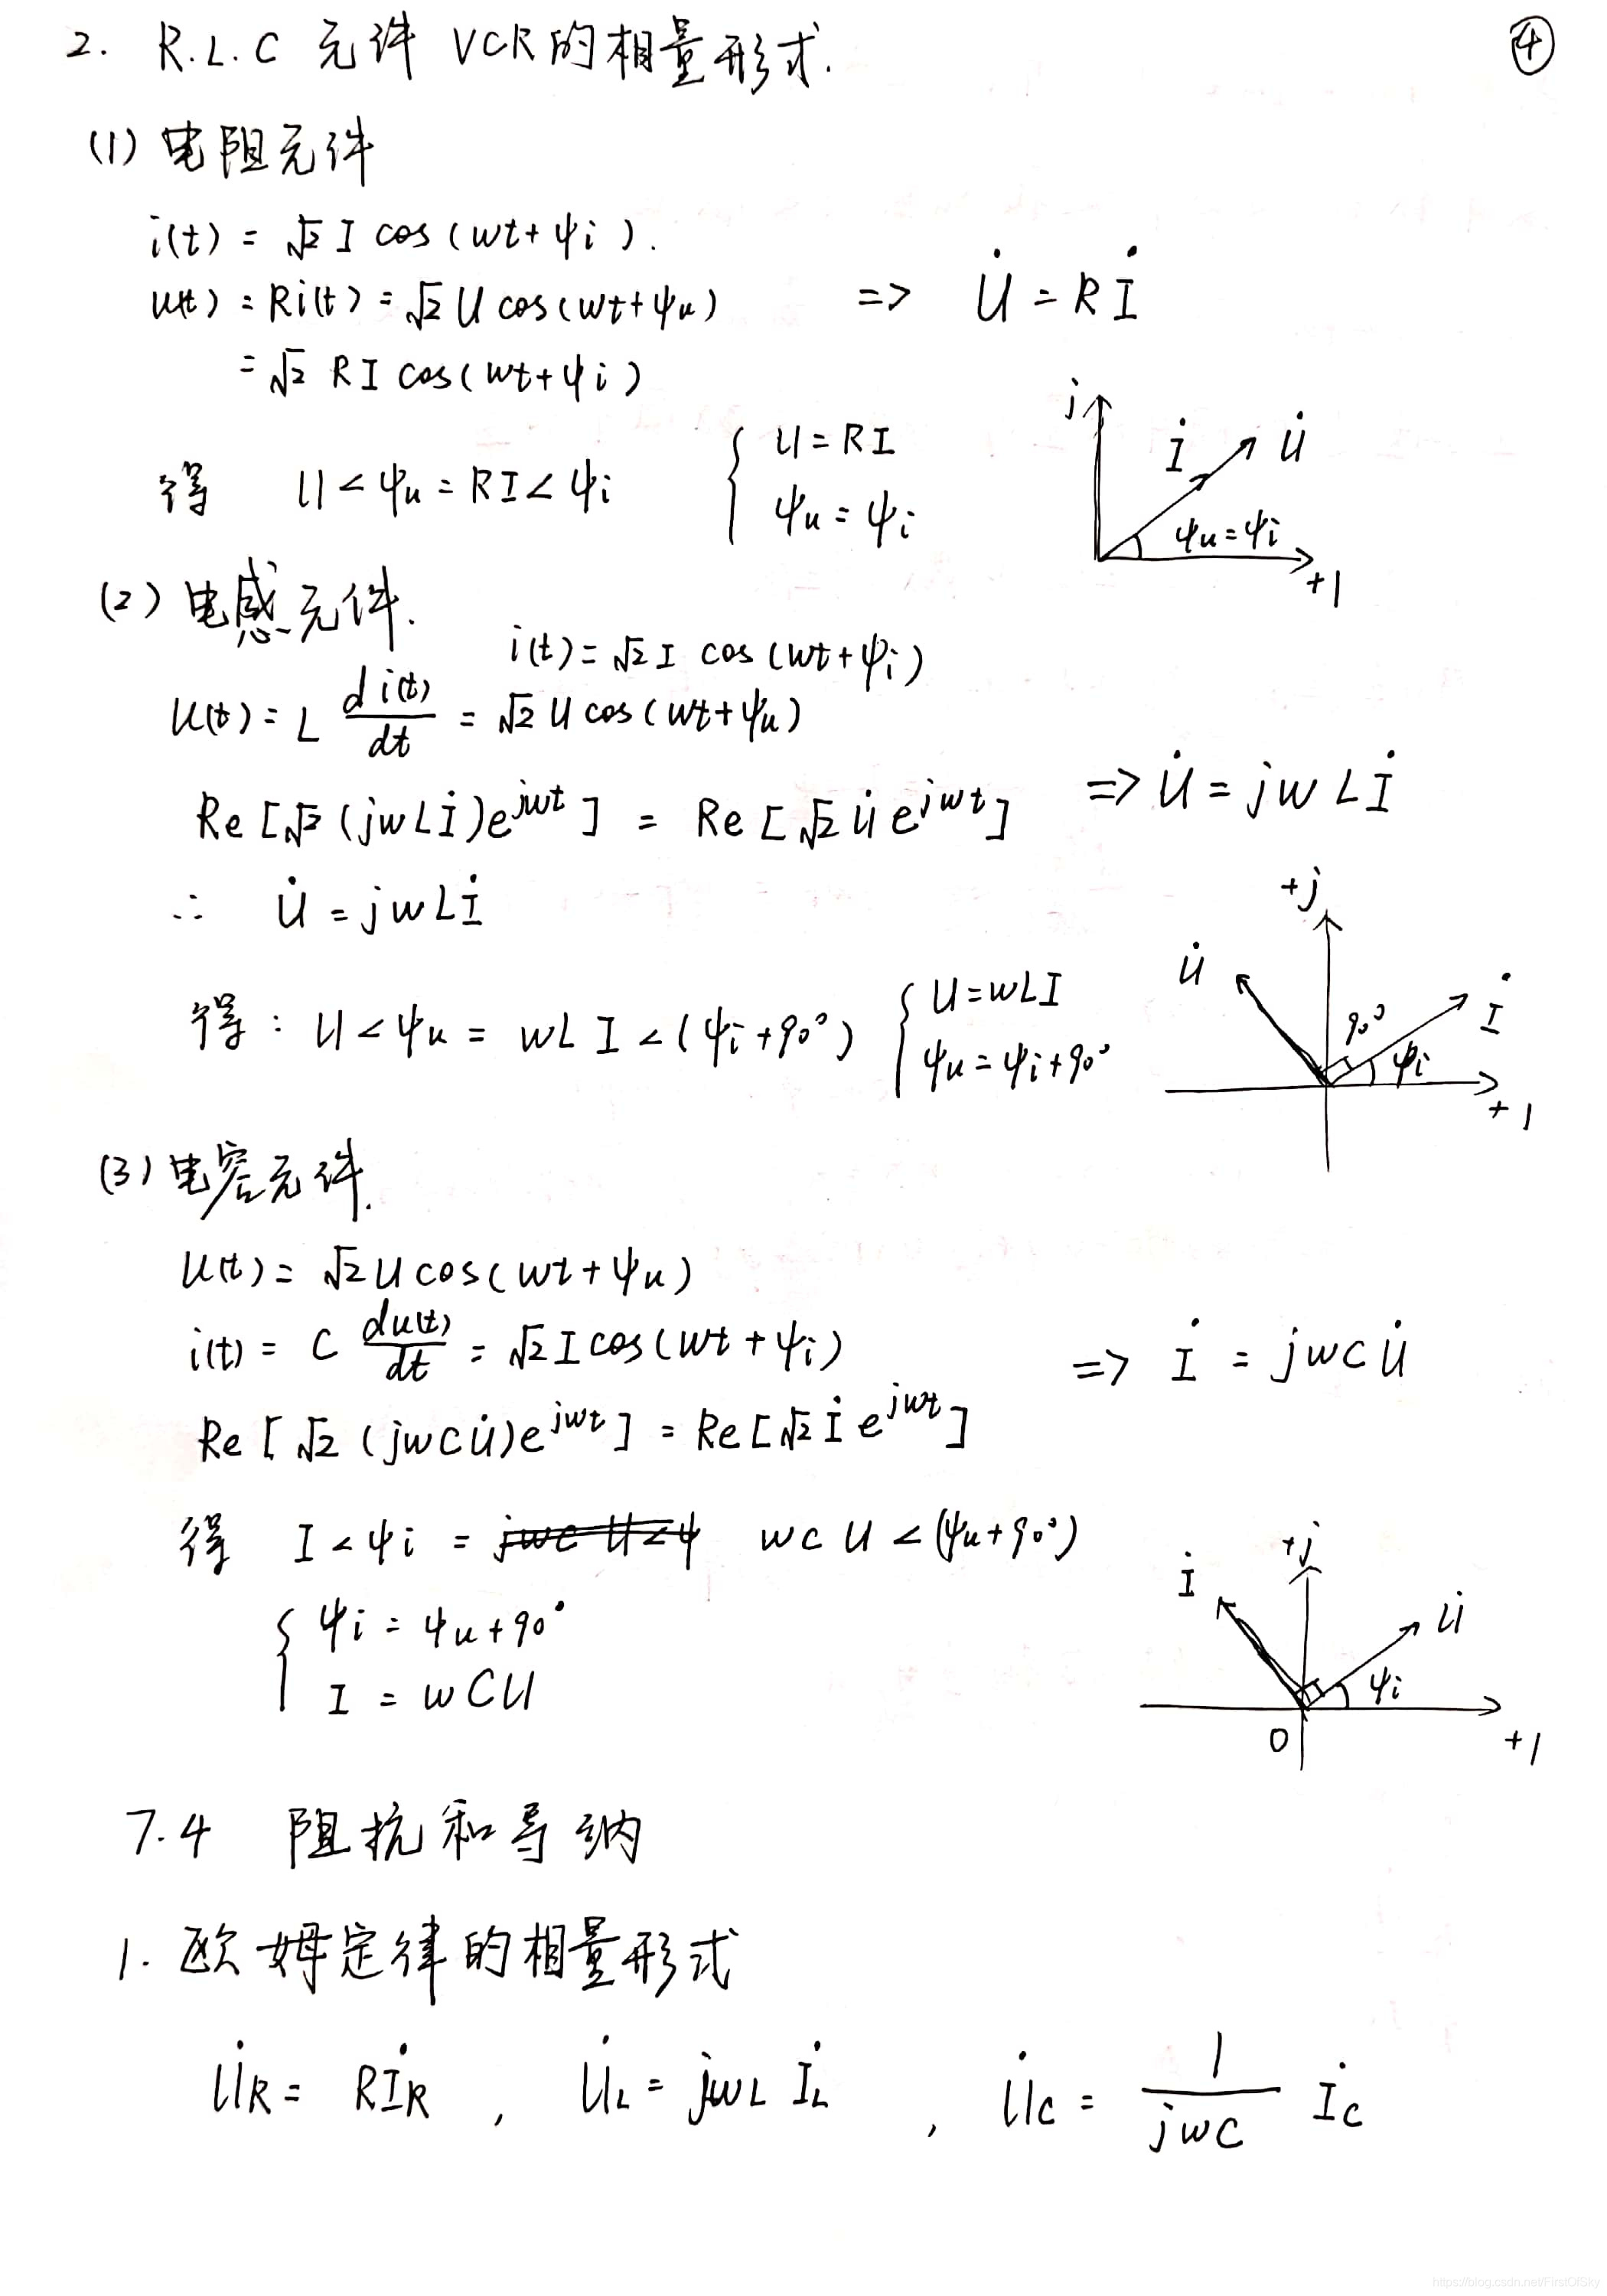 2. R.L.C 元件 VCR的相量形式. ④
(1) 电阻元件
i(t) = √2 I cos (wt+ψi).
u(t) = Ri(t) = √2 U cos(wt+ψu) => U̇ = Rİ
= √2 RI cos(wt+ψi)
得 U∠ψu = RI∠ψi { U=RI
ψu = ψi
j
İ U̇
ψu=ψi
+1
(2) 电感元件.
i(t) = √2 I cos (wt+ψi)
u(t) = L di(t)/dt = √2 U cos(wt+ψu)
Re[√2 (jwLİ)e^jwt] = Re[√2 U̇ e^jwt] => U̇ = jwLİ
∴ U̇ = jwLİ
得: U∠ψu = wL I∠(ψi+90°) { U=wLI
ψu=ψi+90°
+j
U̇
İ
90°
ψi
+1
(3) 电容元件.
u(t) = √2 U cos(wt+ψu)
i(t) = C du(t)/dt = √2 I cos(wt+ψi) => İ = jwCU̇
Re[√2 (jwCU̇)e^jwt] = Re[√2 İ e^jwt]
得 I∠ψi = jwc U∠ψ wc U∠(ψu+90°)
{ ψi = ψu+90°
I = wCU
+j
İ
U̇
ψi
0
+1
7.4 阻抗和导纳
1. 欧姆定律的相量形式
U̇R = RİR , U̇L = jwL İL , U̇C = 1/jwC İC
https://blog.csdn.net/FirstOfSky